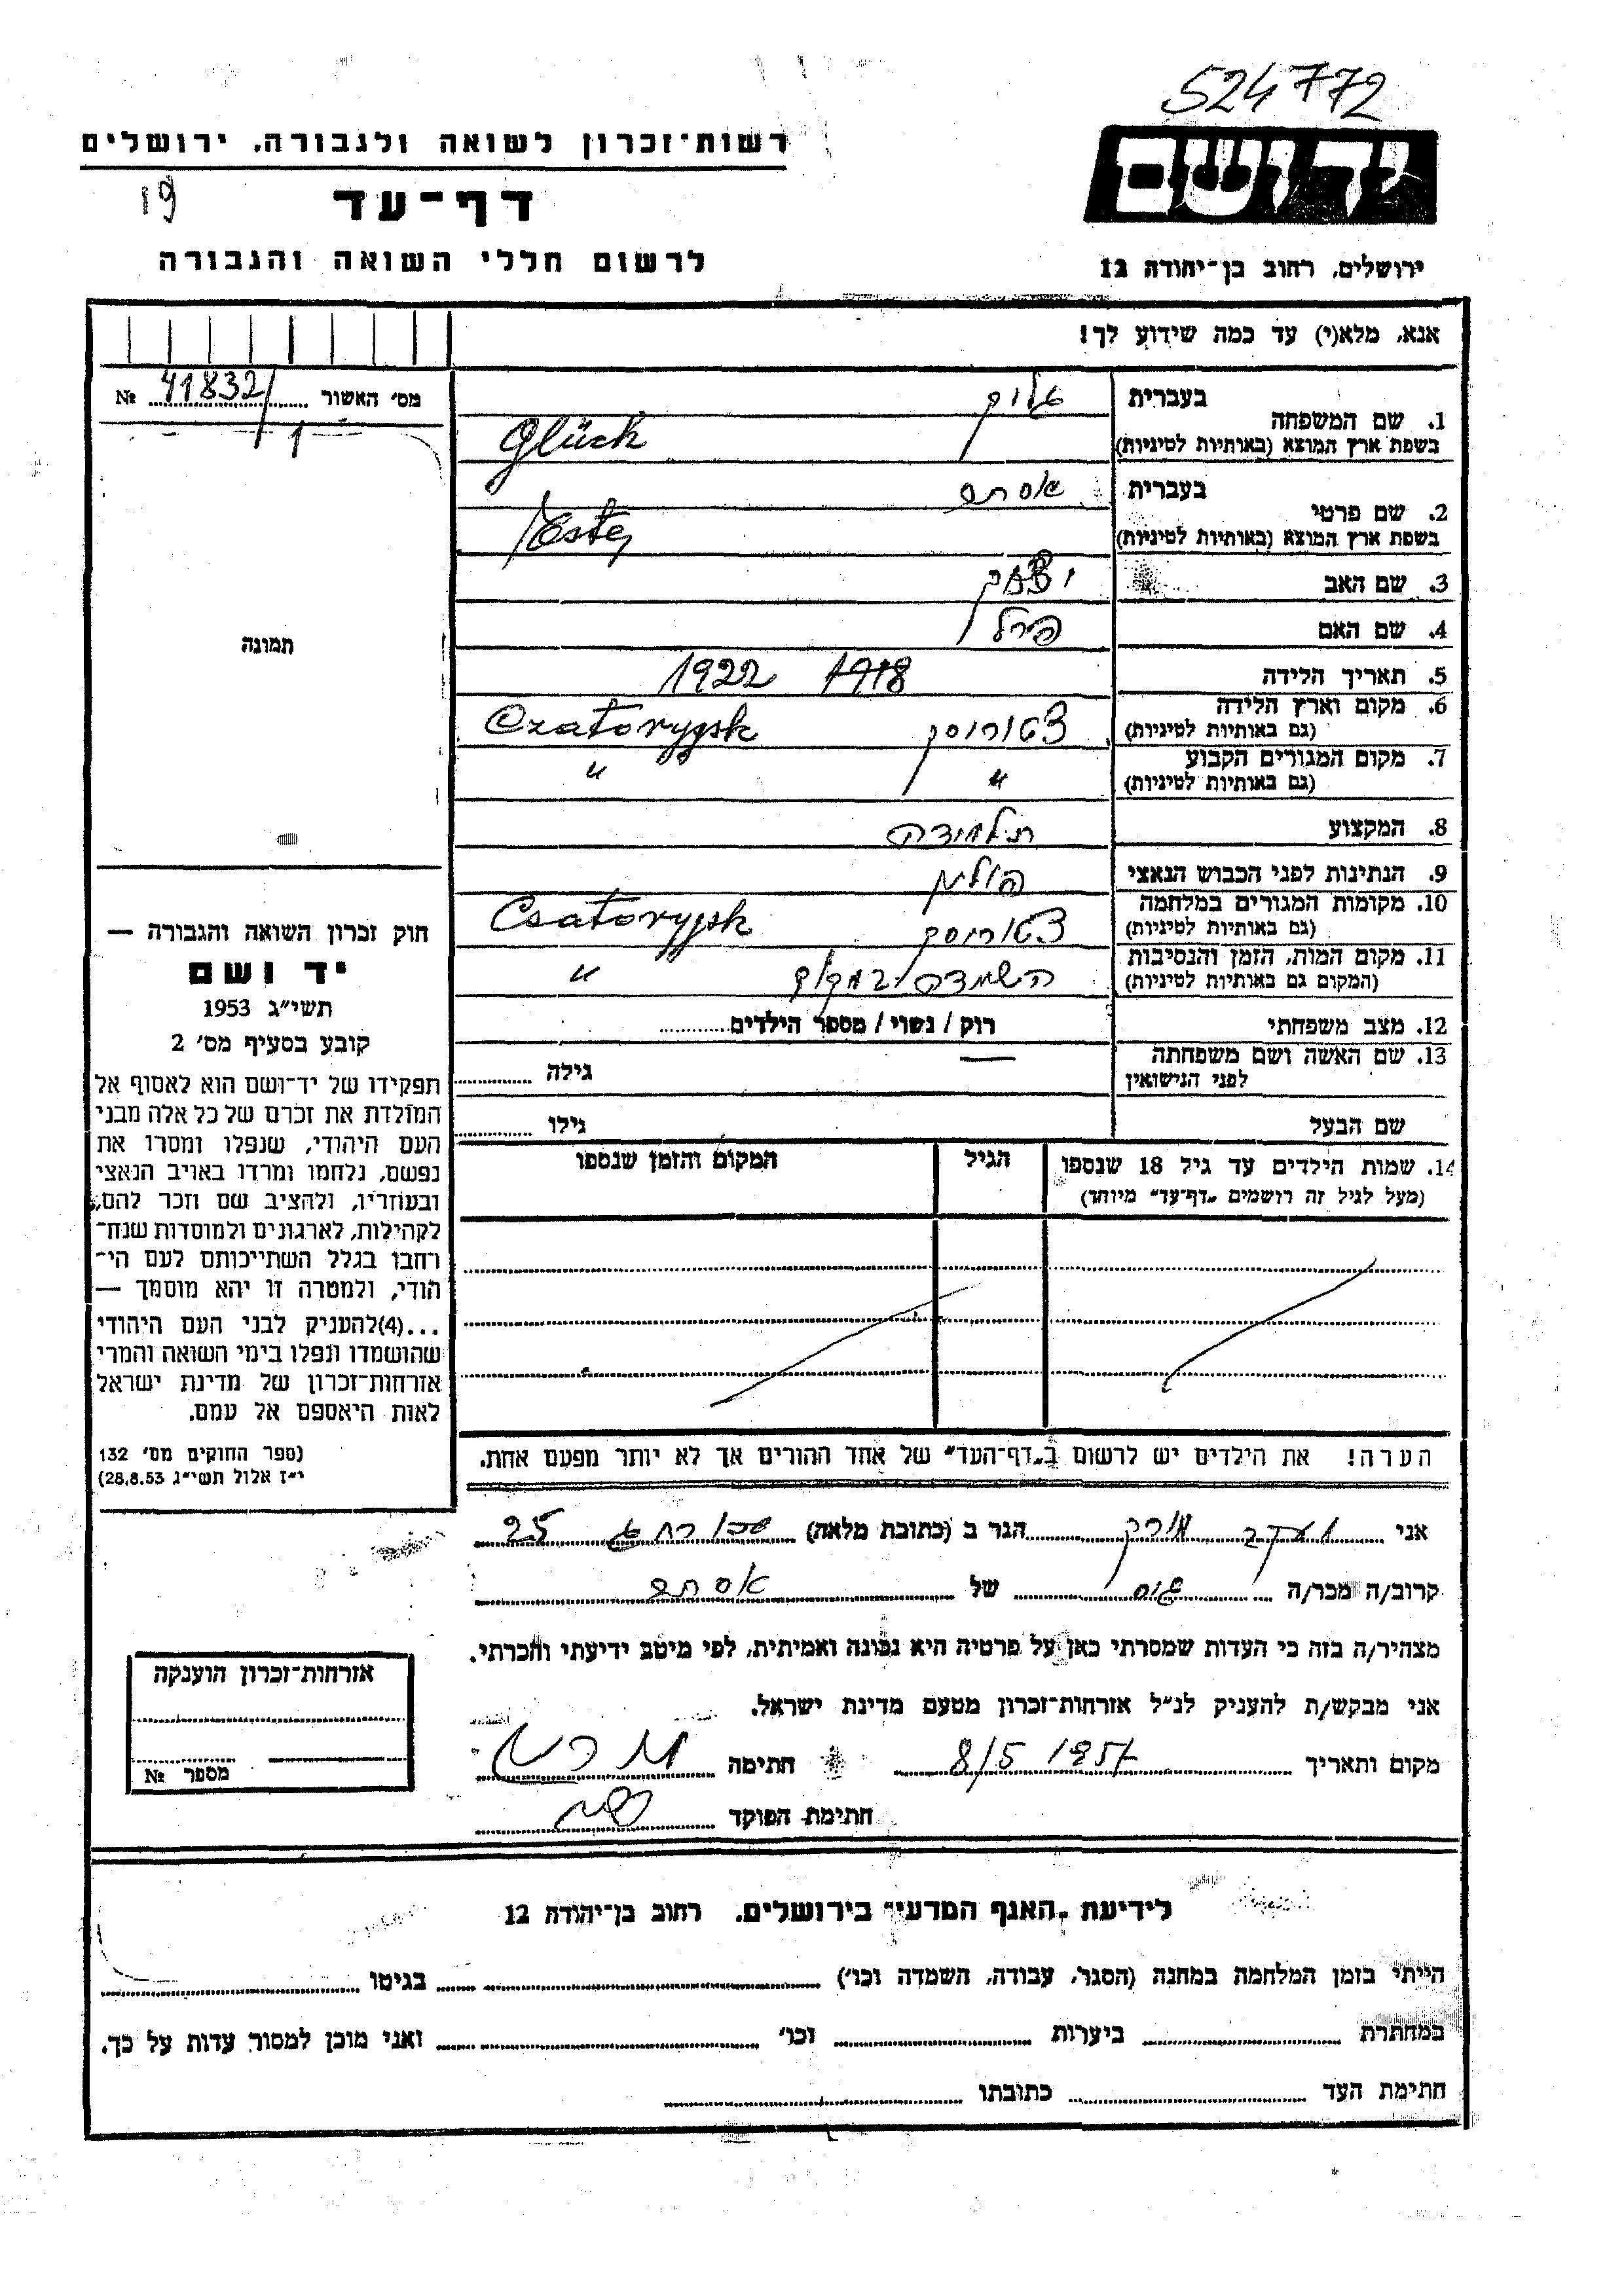 524772
יד ושם
רשות־זכרון לשואה ולגבורה, ירושלים
19
דף־עד
לרשום חללי השואה והגבורה
ירושלים, רחוב בן־יהודה 12
אנא, מלא(י) עד כמה שידוע לך!
מס' האשור 41832/1 №
תמונה
1. שם המשפחה
בעברית גליק
בשפת ארץ המוצא (באותיות לטיניות) Glück
2. שם פרטי
בעברית אסתר
בשפת ארץ המוצא (באותיות לטיניות) Ester
3. שם האב יצחק
4. שם האם פירל
5. תאריך הלידה 1918 1922
6. מקום וארץ הלידה
(גם באותיות לטיניות) Czatorypsk
7. מקום המגורים הקבוע " "
(גם באותיות לטיניות)
8. המקצוע תלמידה
9. הנתינות לפני הכבוש הנאצי פולין
10. מקומות המגורים במלחמה
(גם באותיות לטיניות) Csatorypsk
11. מקום המות, הזמן והנסיבות השמדה "
(המקום גם באותיות לטיניות)
12. מצב משפחתי רוק / נשוי / מספר הילדים
13. שם האשה ושם משפחתה — גילה
לפני הנישואין
שם הבעל גילו
14. שמות הילדים עד גיל 18 שנספו הגיל המקום והזמן שנספו
(מעל לגיל זה רושמים „דף־עד" מיוחד)
חוק זכרון השואה והגבורה —
יד ושם
תשי"ג 1953
קובע בסעיף מס' 2
תפקידו של יד־ושם הוא לאסוף אל
המולדת את זכרם של כל אלה מבני
העם היהודי, שנפלו ומסרו את
נפשם, נלחמו ומרדו באויב הנאצי
ובעוזריו, ולהציב שם וזכר להם,
לקהילות, לארגונים ולמוסדות שנח־
רחבו בגלל השתייכותם לעם הי־
הודי, ולמטרה זו יהא מוסמך —
...(4)להעניק לבני העם היהודי
שהושמדו ונפלו בימי השואה והמרי
אזרחות־זכרון של מדינת ישראל
לאות היאספם אל עמם.
(ספר החוקים מס' 132
י"ז אלול תשי"ג 28.8.53)
הערה! את הילדים יש לרשום ב„דף־העד" של אחד ההורים אך לא יותר מפעם אחת.
אני הגר ב (כתובת מלאה) 25
קרוב/ה מכר/ה של אסתר
מצהיר/ה בזה כי העדות שמסרתי כאן על פרטיה היא נכונה ואמיתית, לפי מיטב ידיעתי והכרתי.
אני מבקש/ת להעניק לנ"ל אזרחות־זכרון מטעם מדינת ישראל.
מקום ותאריך 8/5 1957 חתימה
חתימת הפוקד
אזרחות־זכרון הוענקה
מספר №
לידיעת „האגף המדעי" בירושלים, רחוב בן־יהודה 12
הייתי בזמן המלחמה במחנה (הסגר, עבודה, השמדה וכו') בגיטו
במחתרת ביערות וכו' ואני מוכן למסור עדות על כך.
חתימת העד כתובתו